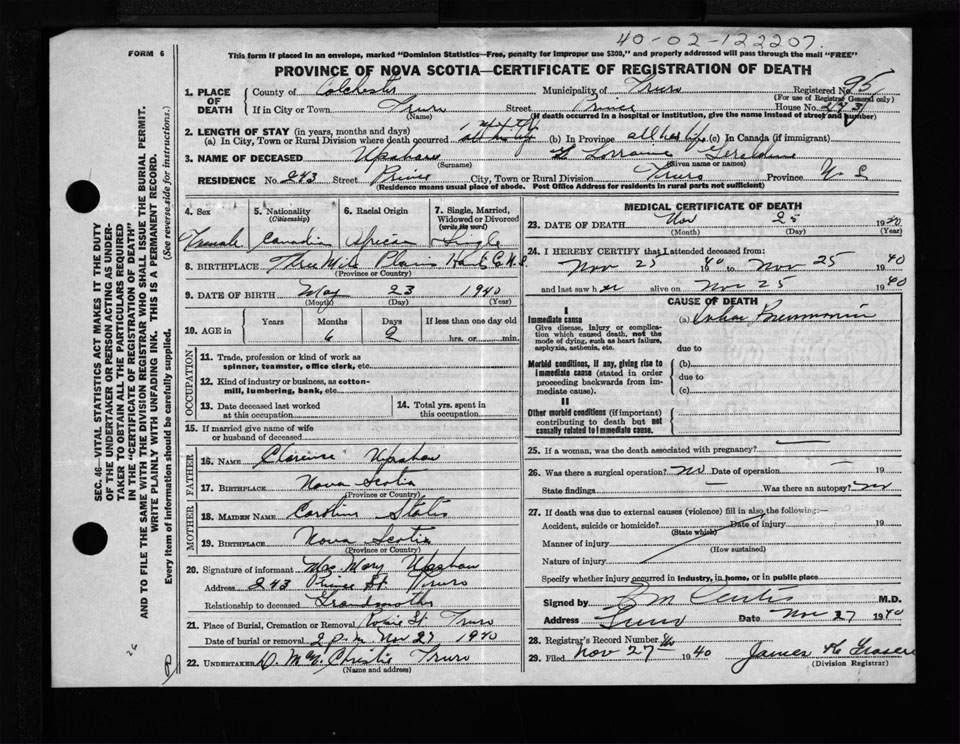 40-02-122207.
FORM 6
This form if placed in an envelope, marked "Dominion Statistics—Free, penalty for improper use $300," and properly addressed will pass through the mail "FREE"
PROVINCE OF NOVA SCOTIA—CERTIFICATE OF REGISTRATION OF DEATH
SEC. 46—VITAL STATISTICS ACT MAKES IT THE DUTY
OF THE UNDERTAKER OR PERSON ACTING AS UNDER-
TAKER TO OBTAIN ALL THE PARTICULARS REQUIRED
IN THE "CERTIFICATE OF REGISTRATION OF DEATH"
AND TO FILE THE SAME WITH THE DIVISION REGISTRAR WHO SHALL ISSUE THE BURIAL PERMIT.
WRITE PLAINLY WITH UNFADING INK. THIS IS A PERMANENT RECORD.
Every item of information should be carefully supplied. (See reverse side for instructions.)
26
1. PLACE OF DEATH
County of Colchester Municipality of Truro Registered No. 95
(For use of Registrar General only)
If in City or Town Truro Street Prince House No. 243
(Name) (If death occurred in a hospital or institution, give the name instead of street and number)
2. LENGTH OF STAY (in years, months and days)
(a) In City, Town or Rural Division where death occurred (b) In Province all her life (c) In Canada (if immigrant)
3. NAME OF DECEASED Upshaw Lorraine Geraldine
(Surname) (Given name or names)
RESIDENCE No. 243 Street Prince City, Town or Rural Division Truro Province N S
(Residence means usual place of abode. Post Office Address for residents in rural parts not sufficient)
4. Sex 5. Nationality (Citizenship) 6. Racial Origin 7. Single, Married, Widowed or Divorced (write the word)
Female Canadian African Single
8. BIRTHPLACE Three Mile Plains Hants Co N.S.
(Province or Country)
9. DATE OF BIRTH May 23 1940
(Month) (Day) (Year)
10. AGE in Years Months Days If less than one day old
6 2 hrs. or min.
OCCUPATION
11. Trade, profession or kind of work as
spinner, teamster, office clerk, etc.
12. Kind of industry or business, as cotton-
mill, lumbering, bank, etc
13. Date deceased last worked
at this occupation
14. Total yrs. spent in
this occupation
15. If married give name of wife
or husband of deceased
FATHER
16. NAME Clarence Upshaw
17. BIRTHPLACE Nova Scotia
(Province or Country)
MOTHER
18. MAIDEN NAME Caroline States
19. BIRTHPLACE Nova Scotia
(Province or Country)
20. Signature of informant Mrs Mary Upshaw
Address 243 Prince St Truro
Relationship to deceased Grandmother
21. Place of Burial, Cremation or Removal St. Truro
Date of burial or removal 2 p.m. Nov 27 1940
22. UNDERTAKER Christie Truro
(Name and address)
MEDICAL CERTIFICATE OF DEATH
23. DATE OF DEATH Nov 25 1940
(Month) (Day) (Year)
24. I HEREBY CERTIFY that I attended deceased from:
Nov 25 1940 to Nov 25 1940
and last saw her alive on Nov 25 1940
CAUSE OF DEATH
I
Immediate cause (a) Lobar Pneumonia
Give disease, injury or complica-
tion which caused death, not the
mode of dying, such as heart failure,
asphyxia, asthenia, etc. due to
Morbid conditions, if any, giving rise to
immediate cause (stated in order
proceeding backwards from im-
mediate cause).
(b)
due to
(c)
II
Other morbid conditions (if important)
contributing to death but not
causally related to immediate cause.
25. If a woman, was the death associated with pregnancy? —
26. Was there a surgical operation? no Date of operation — 19
State findings — Was there an autopsy? no
27. If death was due to external causes (violence) fill in also the following:—
Accident, suicide or homicide? Date of injury 19
(State which)
Manner of injury
(How sustained)
Nature of injury
Specify whether injury occurred in industry, in home, or in public place
Signed by Curtis M.D.
Address Truro Date Nov 27 1940
28. Registrar's Record Number
29. Filed Nov 27th 1940 James Fraser
(Division Registrar)